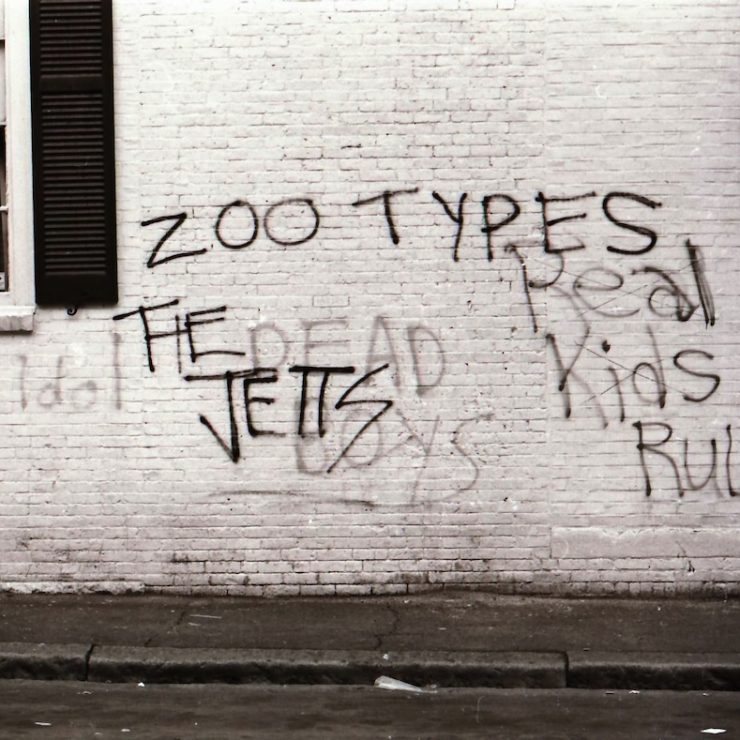 ZOO TYPES
THE
JETTS
Idol
DEAD
BOYS
Real
Kids
RUL